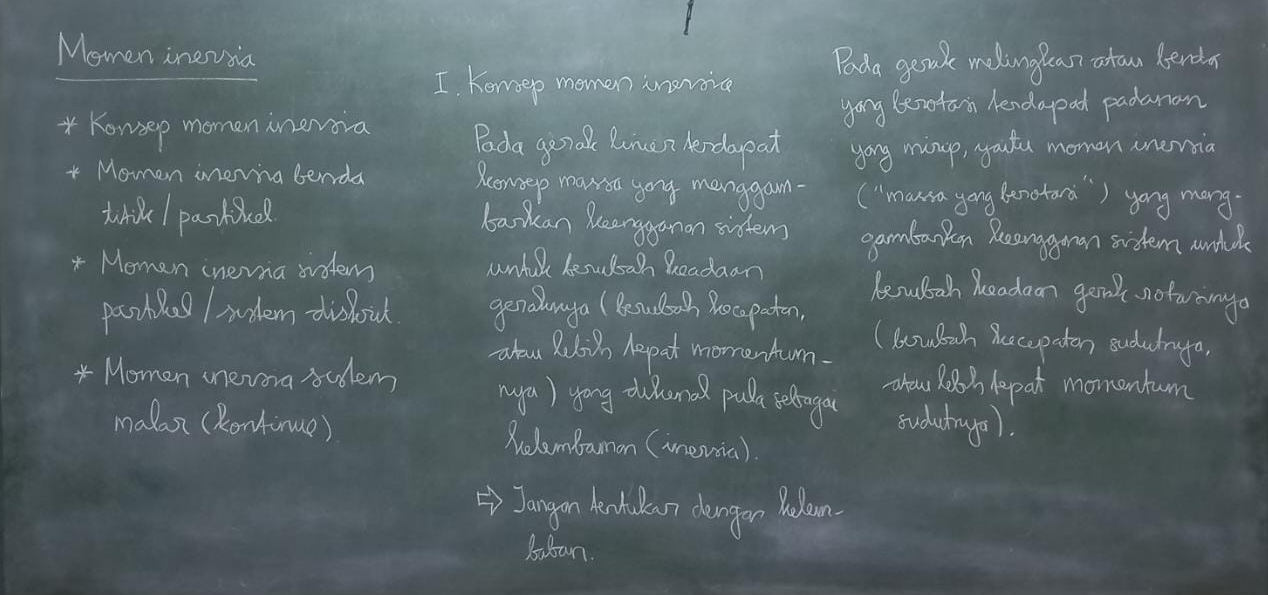 Momen inersia
* Konsep momen inersia
* Momen inersia benda
titik / partikel.
* Momen inersia sistem
partikel / sistem diskrit.
* Momen inersia sistem
malar (kontinue).
I. Konsep momen inersia
Pada gerak linier terdapat
konsep massa yang menggam-
barkan keengganan sistem
untuk berubah keadaan
geraknya (berubah kecepatan,
atau lebih tepat momentum-
nya) yang dikenal pula sebagai
kelembaman (inersia).
⇨ Jangan tertukar dengan kelem-
baban.
Pada gerak melingkar atau benda
yang berotasi terdapad padanan
yang mirip, yaitu momen inersia
("massa yang berotasi") yang meng-
gambarkan keengganan sistem untuk
berubah keadaan gerak rotasinya
(berubah kecepatan sudutnya,
atau lebih tepat momentum
sudutnya).